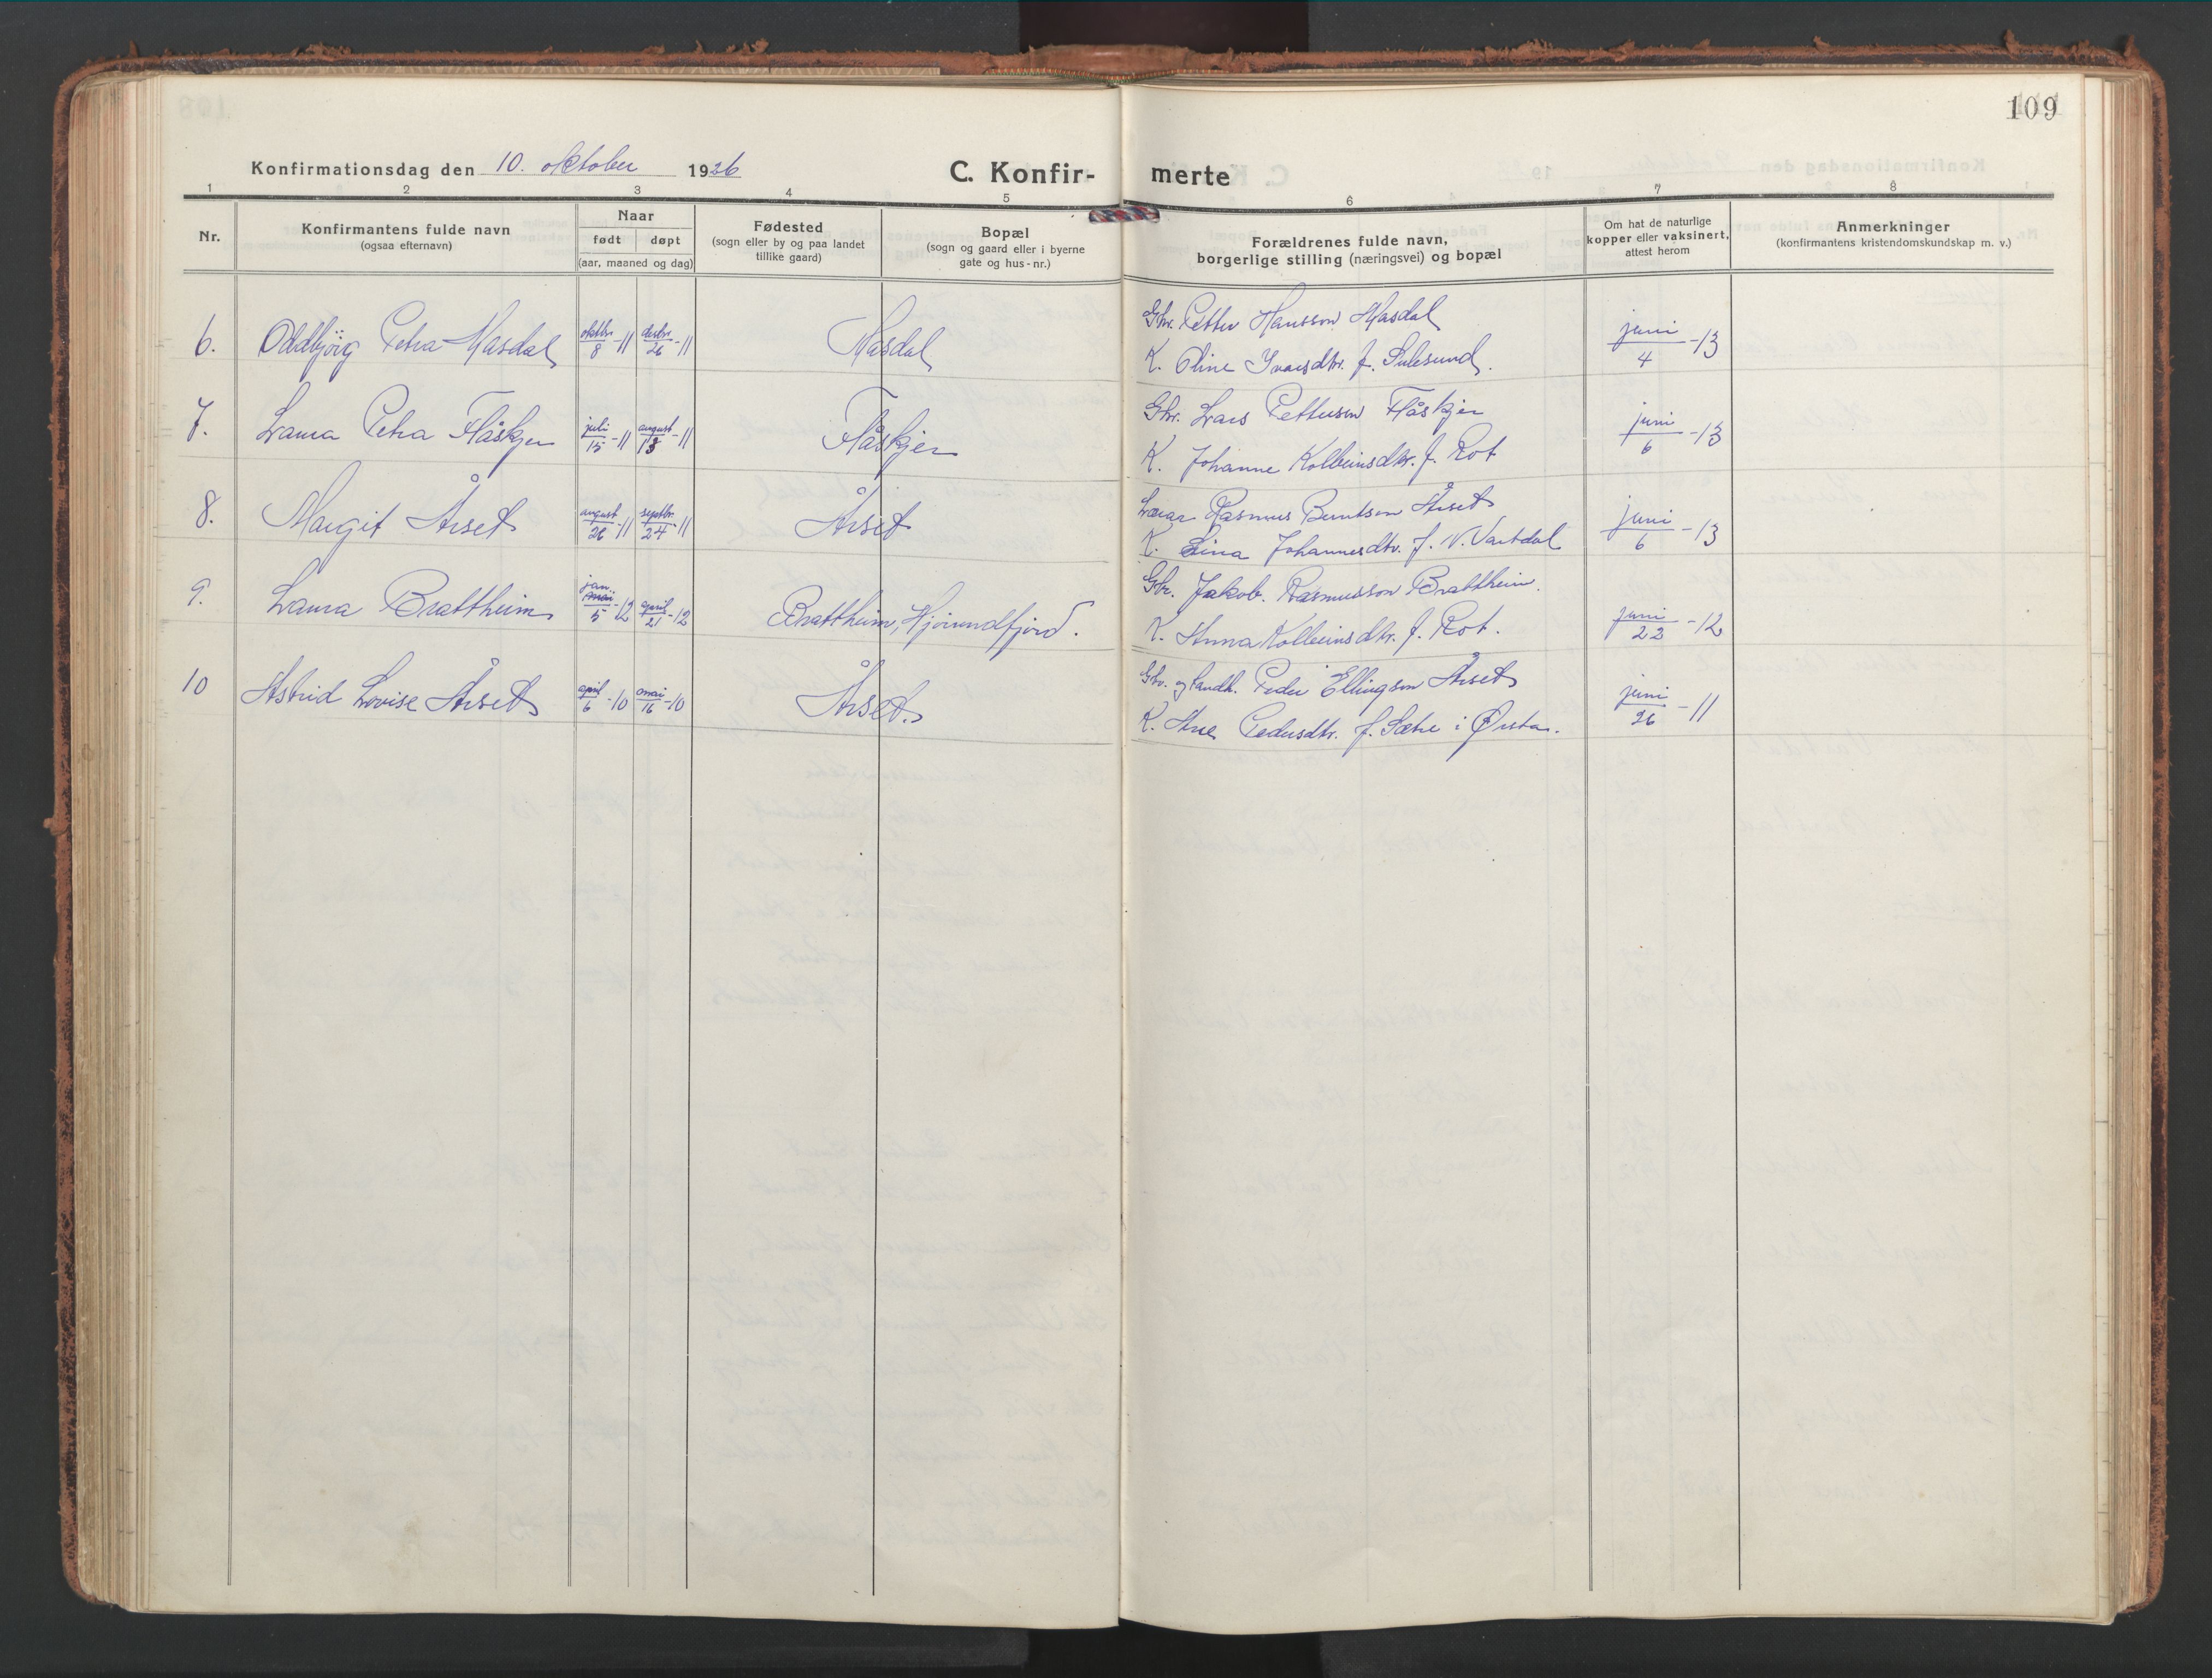 109
Konfirmationsdag den 10. oktober 1926
C. Konfir-
merte
1 2 3 4 5 6 7 8
Nr.
Konfirmantens fulde navn
(ogsaa efternavn)
Naar
født døpt
(aar, maaned og dag)
Fødested
(sogn eller by og paa landet
tillike gaard)
Bopæl
(sogn og gaard eller i byerne
gate og hus-nr.)
Forældrenes fulde navn,
borgerlige stilling (næringsvei) og bopæl
Om hat de naturlige
kopper eller vaksinert,
attest herom
Anmerkninger
(konfirmantens kristendomskundskap m. v.)
6. Oddbjörg Petra Masdal oktbr. 8 -11 desbr. 26 -11 Masdal
Gbr. Petter Hansson Masdal
K. Oline Ivarsdtr. f. Sulesund. juni 4 -13
7. Laura Petra Flåskjer juli 15 -11 august 13 -11 Flåskjer
Gbr. Lars Pettersen Flåskjer
K. Johanne Kolbeinsdtr. f. Rot juni 6 -13
8. Margit Årset august 26 -11 septbr. 24 -11 Årset
Rasmus Berntsen Årset
K. Lina Johannesdtr. f. N. Vartdal juni 6 -13
9. Laura Brattheim jan. 5 -12 april 21 -12 Brattheim, Hjørundfjord.
Gbr. Jakob. Rasmusson Brattheim.
K. Anna Kolbeinsdtr. f. Rot. juni 22 -12
10 Astrid Lovise Årset april 6 -10 mai 16 -10 Årset.
Gbr. og landh. Peder Ellingson Årset
K. Ane Pedersdtr. f. Sætre i Ørsta. juni 26 -11